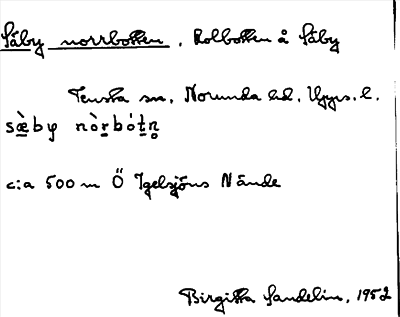 Såby norrbotten, Rolbotten å Såby
Tensta sn, Norunda hd, Upps. l.
sæ̀by nòrbótn̥
c:a 500 m Ö Igelsjöns Nände
Birgitta Sandelin, 1952